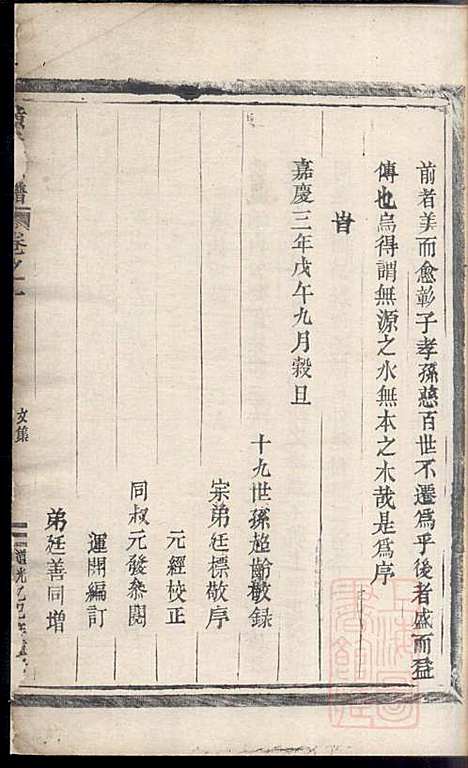 前者美而愈彰子孝孫慈百世不遷爲乎後者盛而益
傳也烏得謂無源之水無本之木哉是爲序
旹
嘉慶三年戊午九月穀旦
十九世孫超齡敬録
宗弟廷標敬序
元經校正
同叔元發叅閱
運開編訂
弟廷善同增
譜
卷之一
文集
道光乙巳年